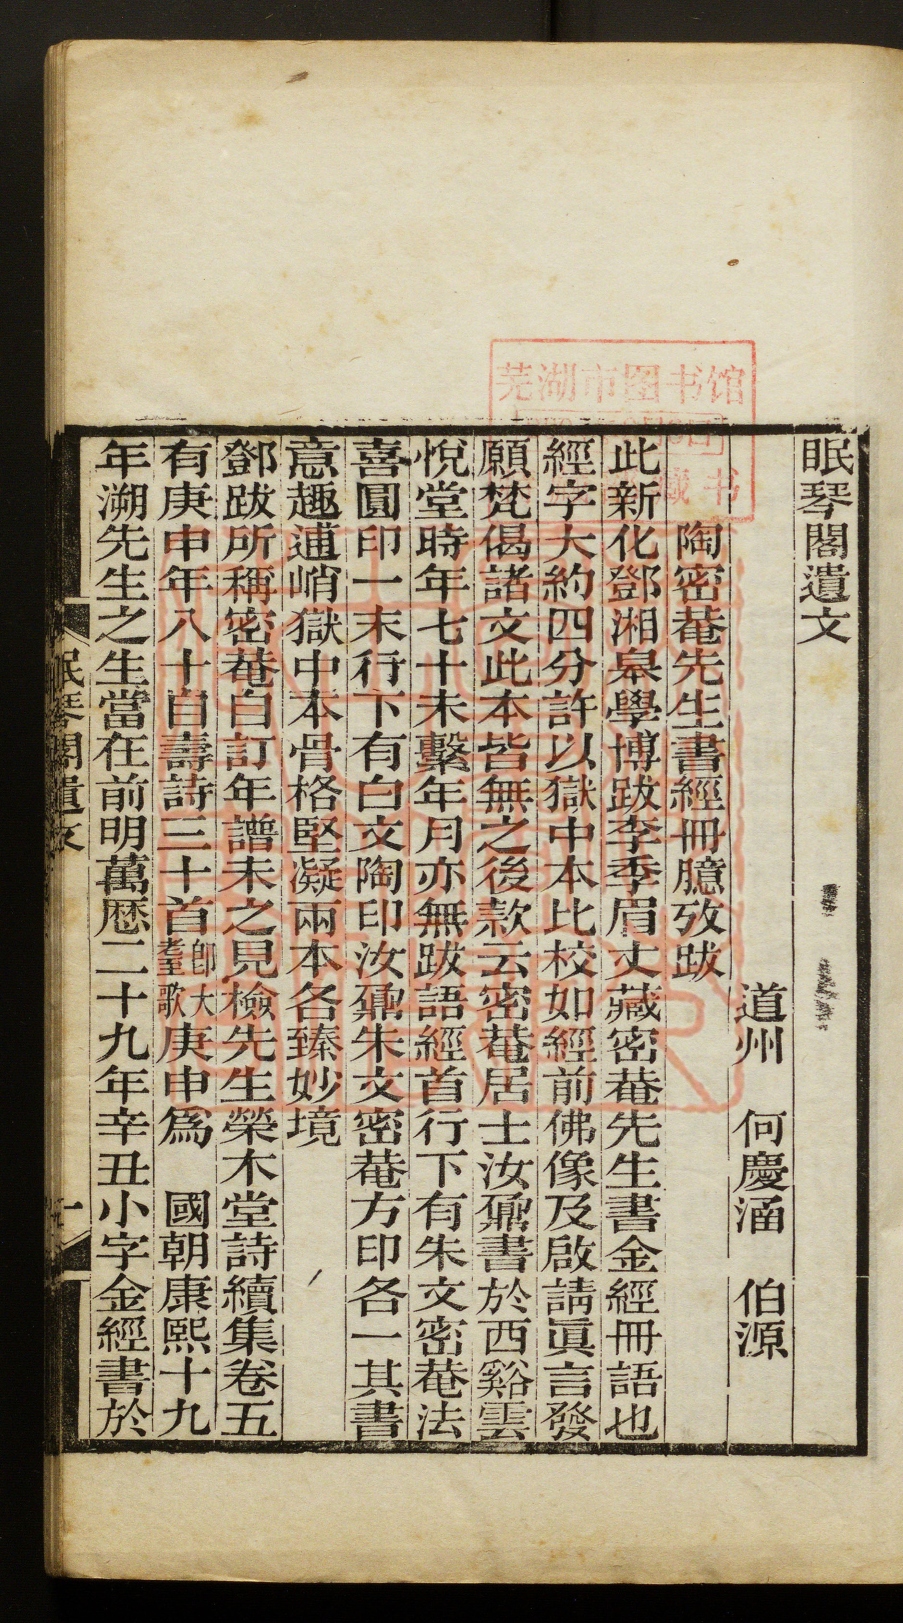 眠琴閣遺文
道州　何慶涵　伯源
陶密菴先生書經冊臆攷跋
此新化鄧湘皋學博跋李季眉丈藏密菴先生書金經冊語也
經字大約四分許以獄中本比校如經前佛像及啟請眞言發
願梵偈諸文此本皆無之後款云密菴居士汝鼐書於西谿雲
悅堂時年七十未繫年月亦無跋語經首行下有朱文密菴法
喜圓印一末行下有白文陶印汝鼐朱文密菴方印各一其書
意趣逋峭獄中本骨格堅凝兩本各臻妙境
鄧跋所稱密菴自訂年譜未之見檢先生榮木堂詩續集卷五
有庚申年八十自壽詩三十首卽大耋歌庚申爲　國朝康熙十九
年溯先生之生當在前明萬歷二十九年辛丑小字金經書於
眠琴閣遺文
一
芜湖市图书馆
藏书